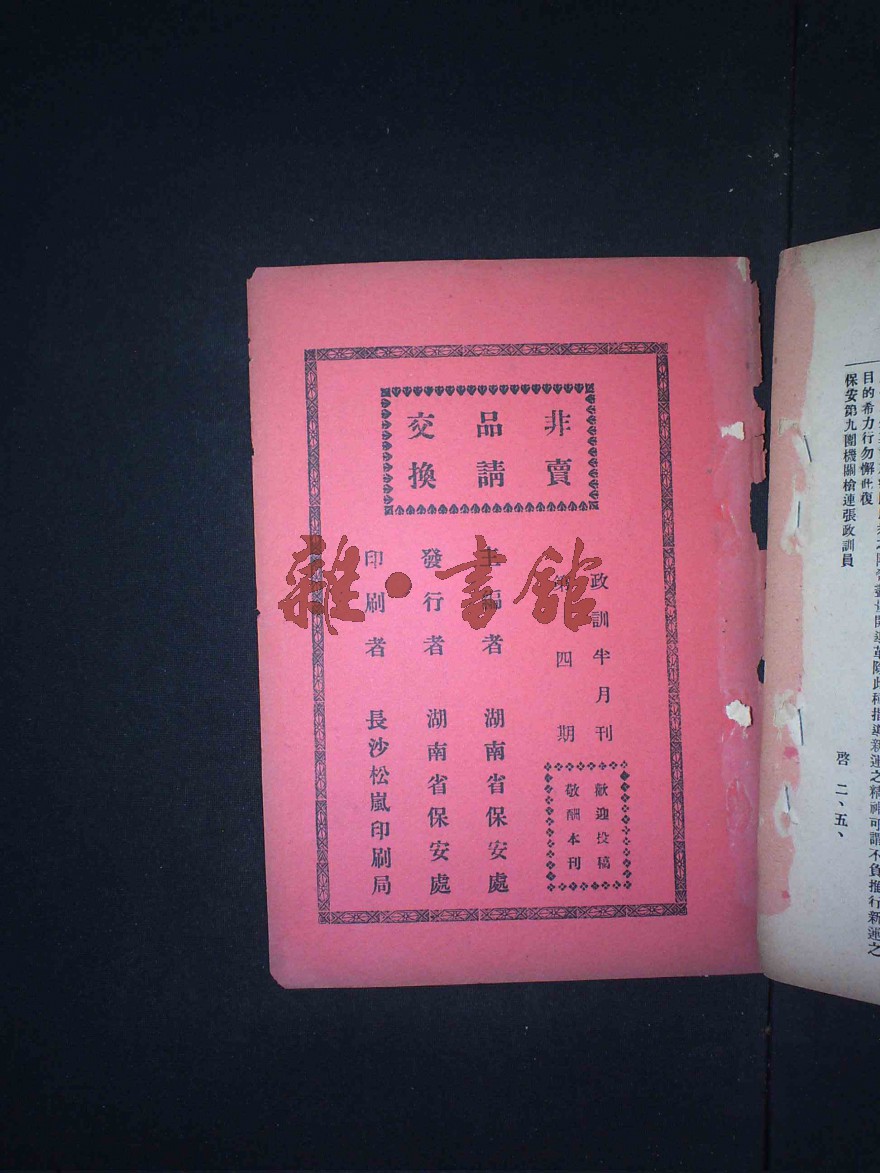 目的希力行勿懈此復
保安第九團機關槍連張政訓員
啓 二、五、
非賣
品請
交換
政訓半月刊
第四期
歡迎投稿
敬酬本刊
主編者 湖南省保安處
發行者 湖南省保安處
印刷者 長沙松嵐印刷局
雜·書館